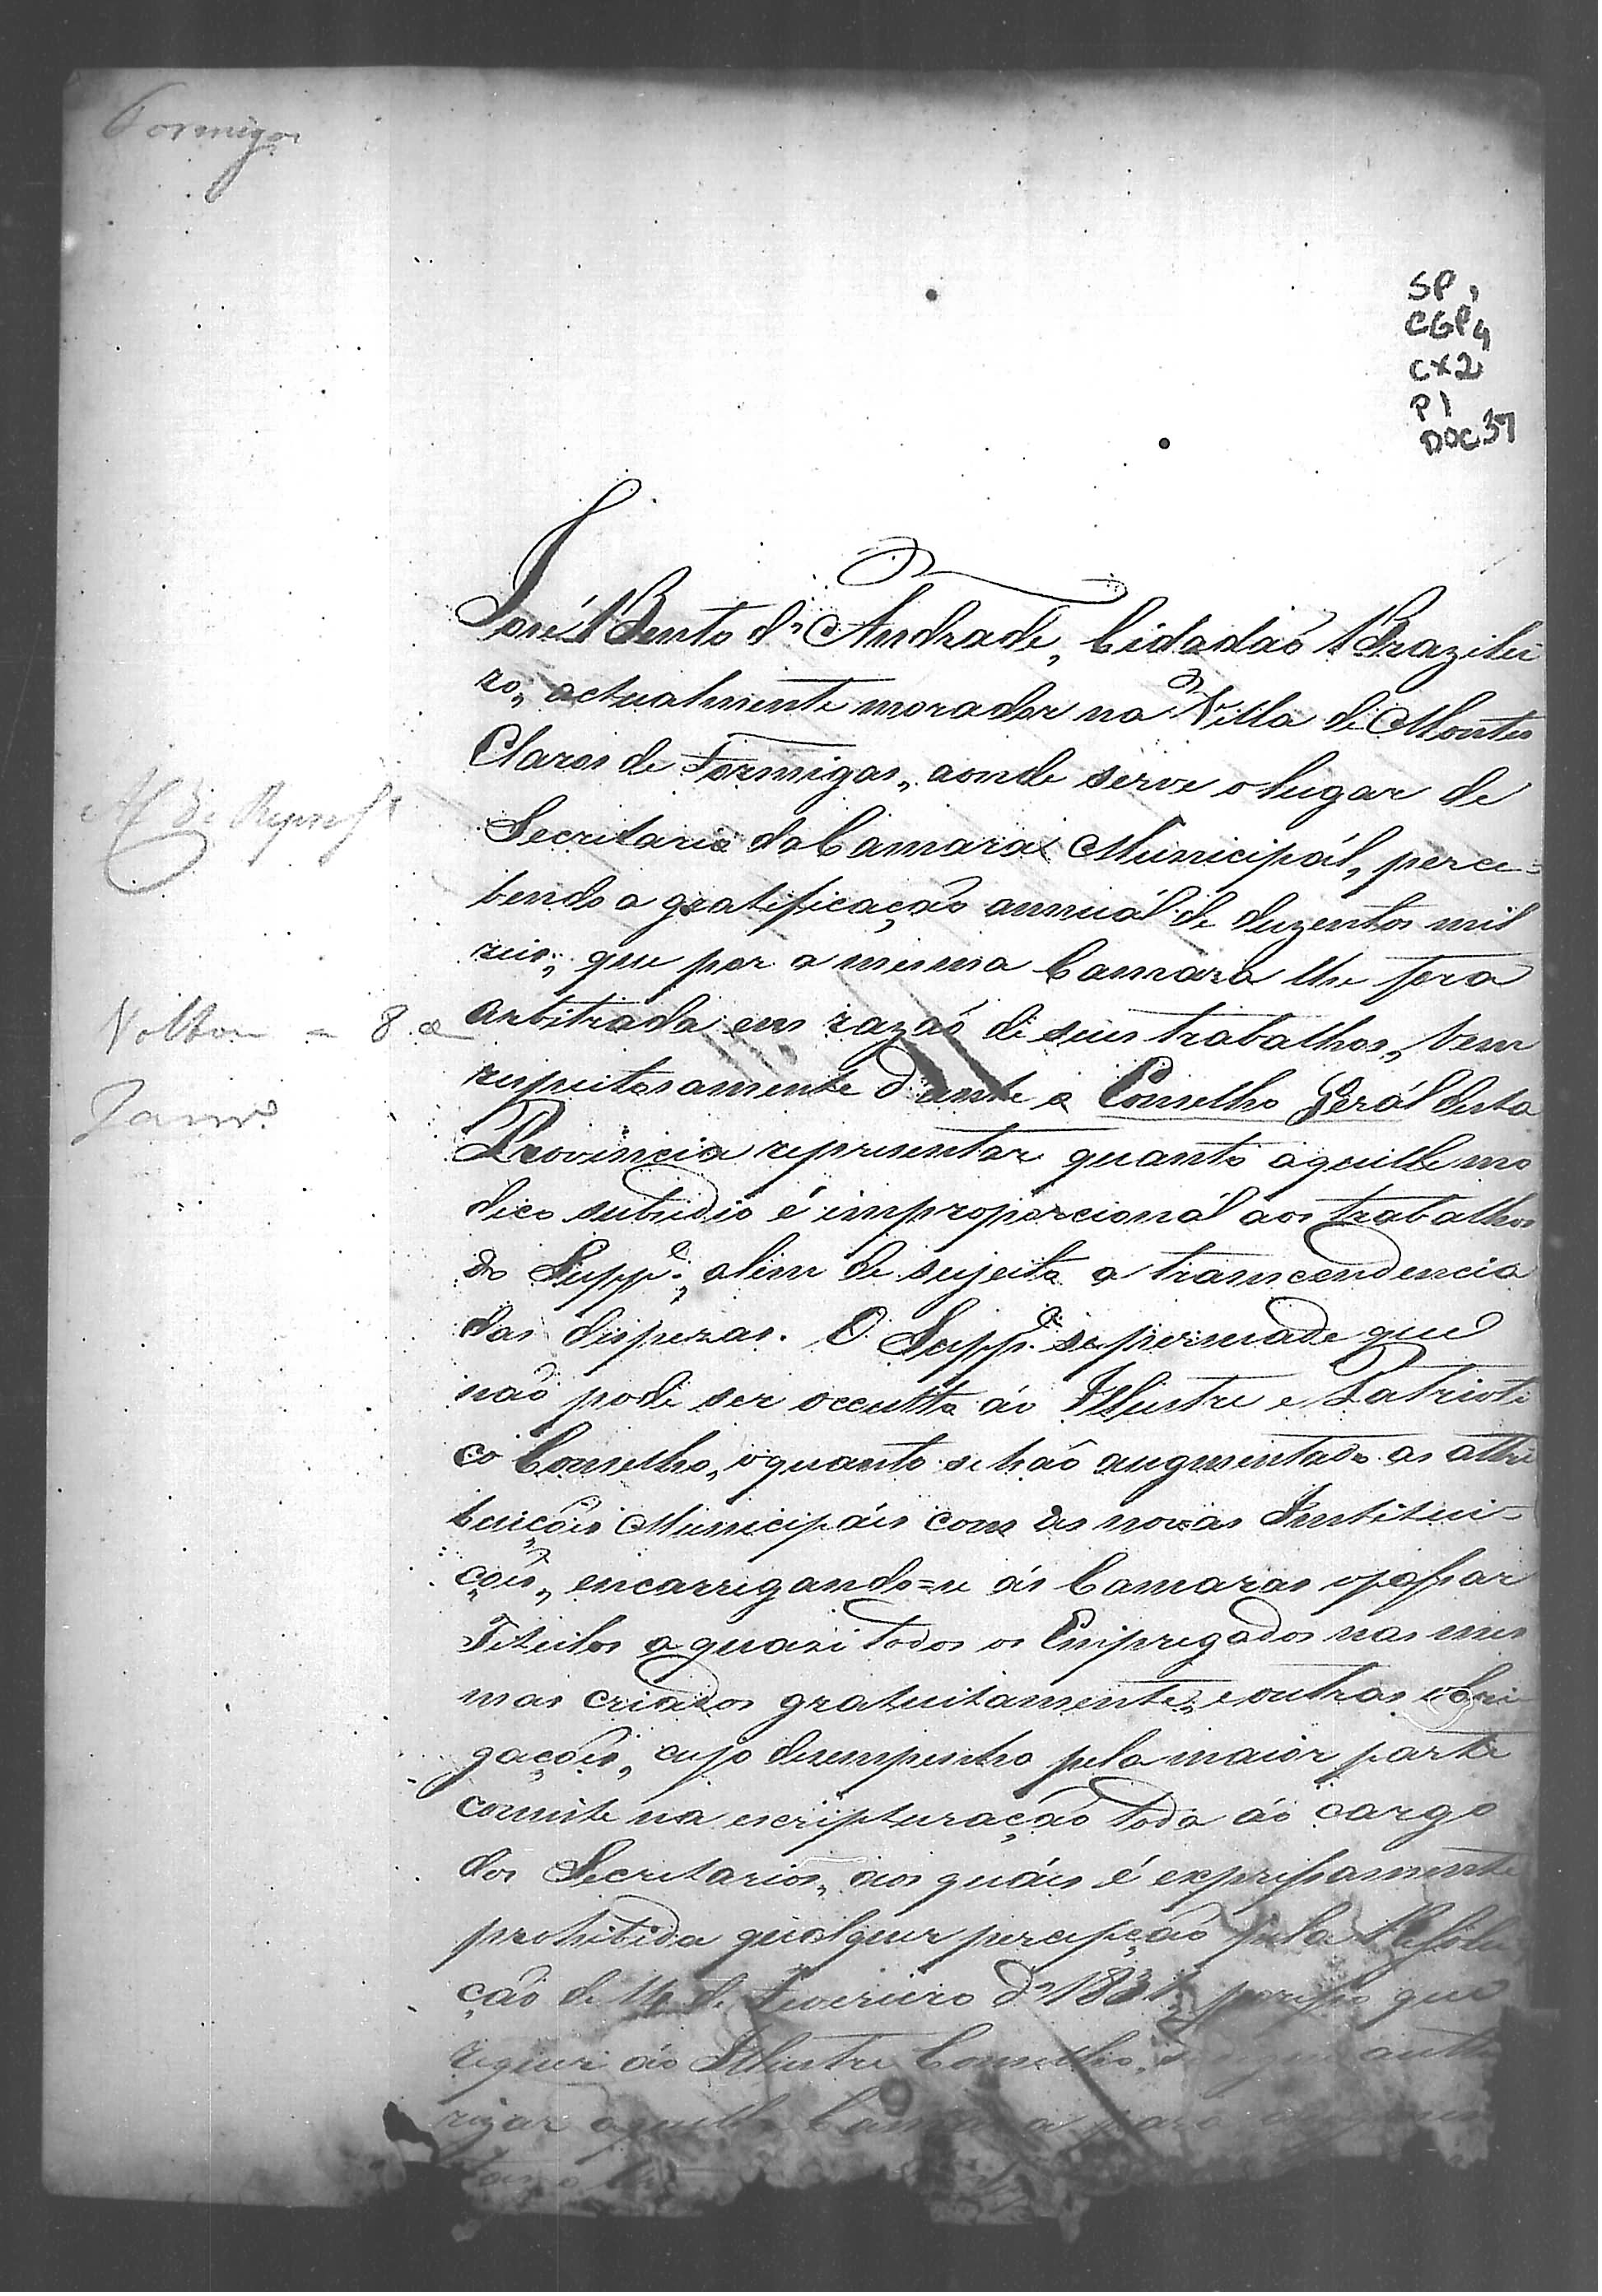 Formigas
SP 1
CGP 4
CX2
P1
DOC 37
José Bento d'Andrade, Cidadaõ Brazilei
ro, actualmente morador na Villa de Montes
Claros de Formigas, aonde serve o lugar de
Secretario da Camara Municipál, perce=
bendo a gratificação annuál de duzentos mil
reis, que por a mesma Camara lhe fora
arbitrada em razaõ de seus trabalhos, vem
respeitosamente d'ante o Conselho Gerál desta
Provincia representar quanto aquelle mo
dico subsidio é improporcionál aos trabalhos
do Supp.e, alem de sujeito a transcendencia
das despezas. O Supp.e se persuade que
naõ pode ser occulto áo Illustre e Patrioti
co Conselho, o quanto se haõ augmentado as attri
buiçoẽs Municipáis com as novas Instituí-
çoẽs, encarregando=se ás Camaras o passar
Titulos a quasi todos os Empregados nas mes
mas criados gratuitamente, e outras obri-
gaçoẽs, cujo desempenho pela maiór parte
consiste na escripturaçaõ toda áo cargo
dos Secretarios, aos quáis é expressamente
prohibida qualquer percepçaõ pela Resolu
çaõ de 14 de Fevereiro d'1831, por isso que
requer áo Illustre Conselho, se digne autho
rizar aquella Camara para augmen
A C. de Repres.
Voltou = 8 de
Janr.o